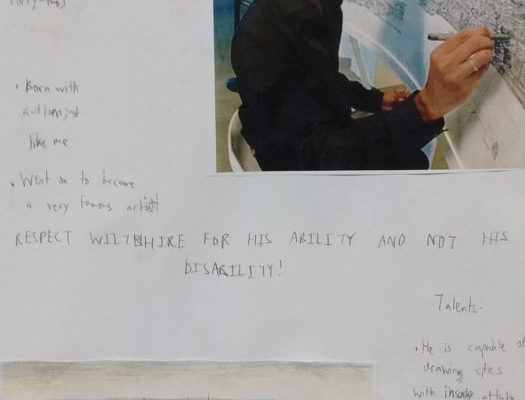 • Born with
autism just
like me
• Went on to become
a very famous artist
RESPECT WILTSHIRE FOR HIS ABILITY AND NOT HIS
DISABILITY!
Talents:-
• He is capable of
drawing
with insane